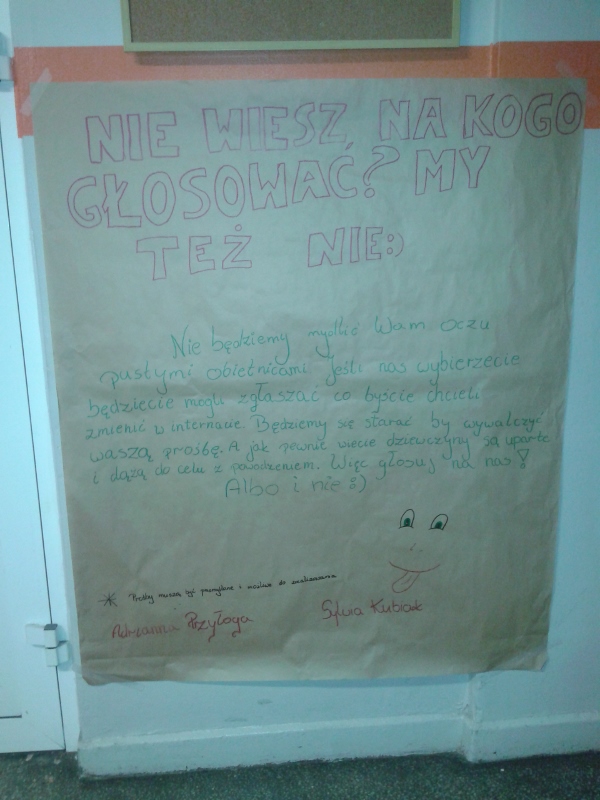 NIE WIESZ, NA KOGO
GŁOSOWAĆ? MY
TEŻ NIE:)
Nie będziemy mydlić Wam oczu
pustymi obietnicami Jeśli nas wybierzecie
będziecie mogli zgłaszać co byście chcieli
zmienić w internacie. Będziemy się starać by wywalczyć
waszą prośbę. A jak pewnie wiecie dziewczyny są uparte
i dążą do celu z powodzeniem. Więc głosuj na nas!
Albo i nie :)
* Prośby muszą być przemyślane i możliwe do zrealizowania
Adrianna Przyłoga
Sylwia Kubiak